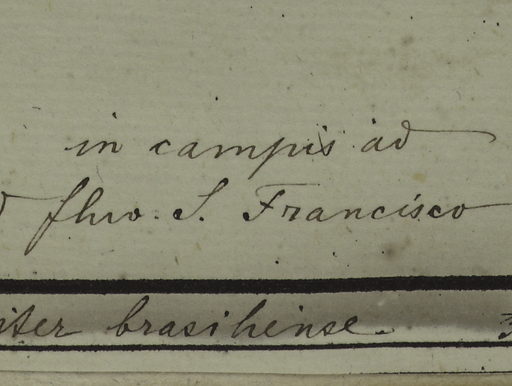 in campis ad
fluv. S. Francisco
iter brasiliense.